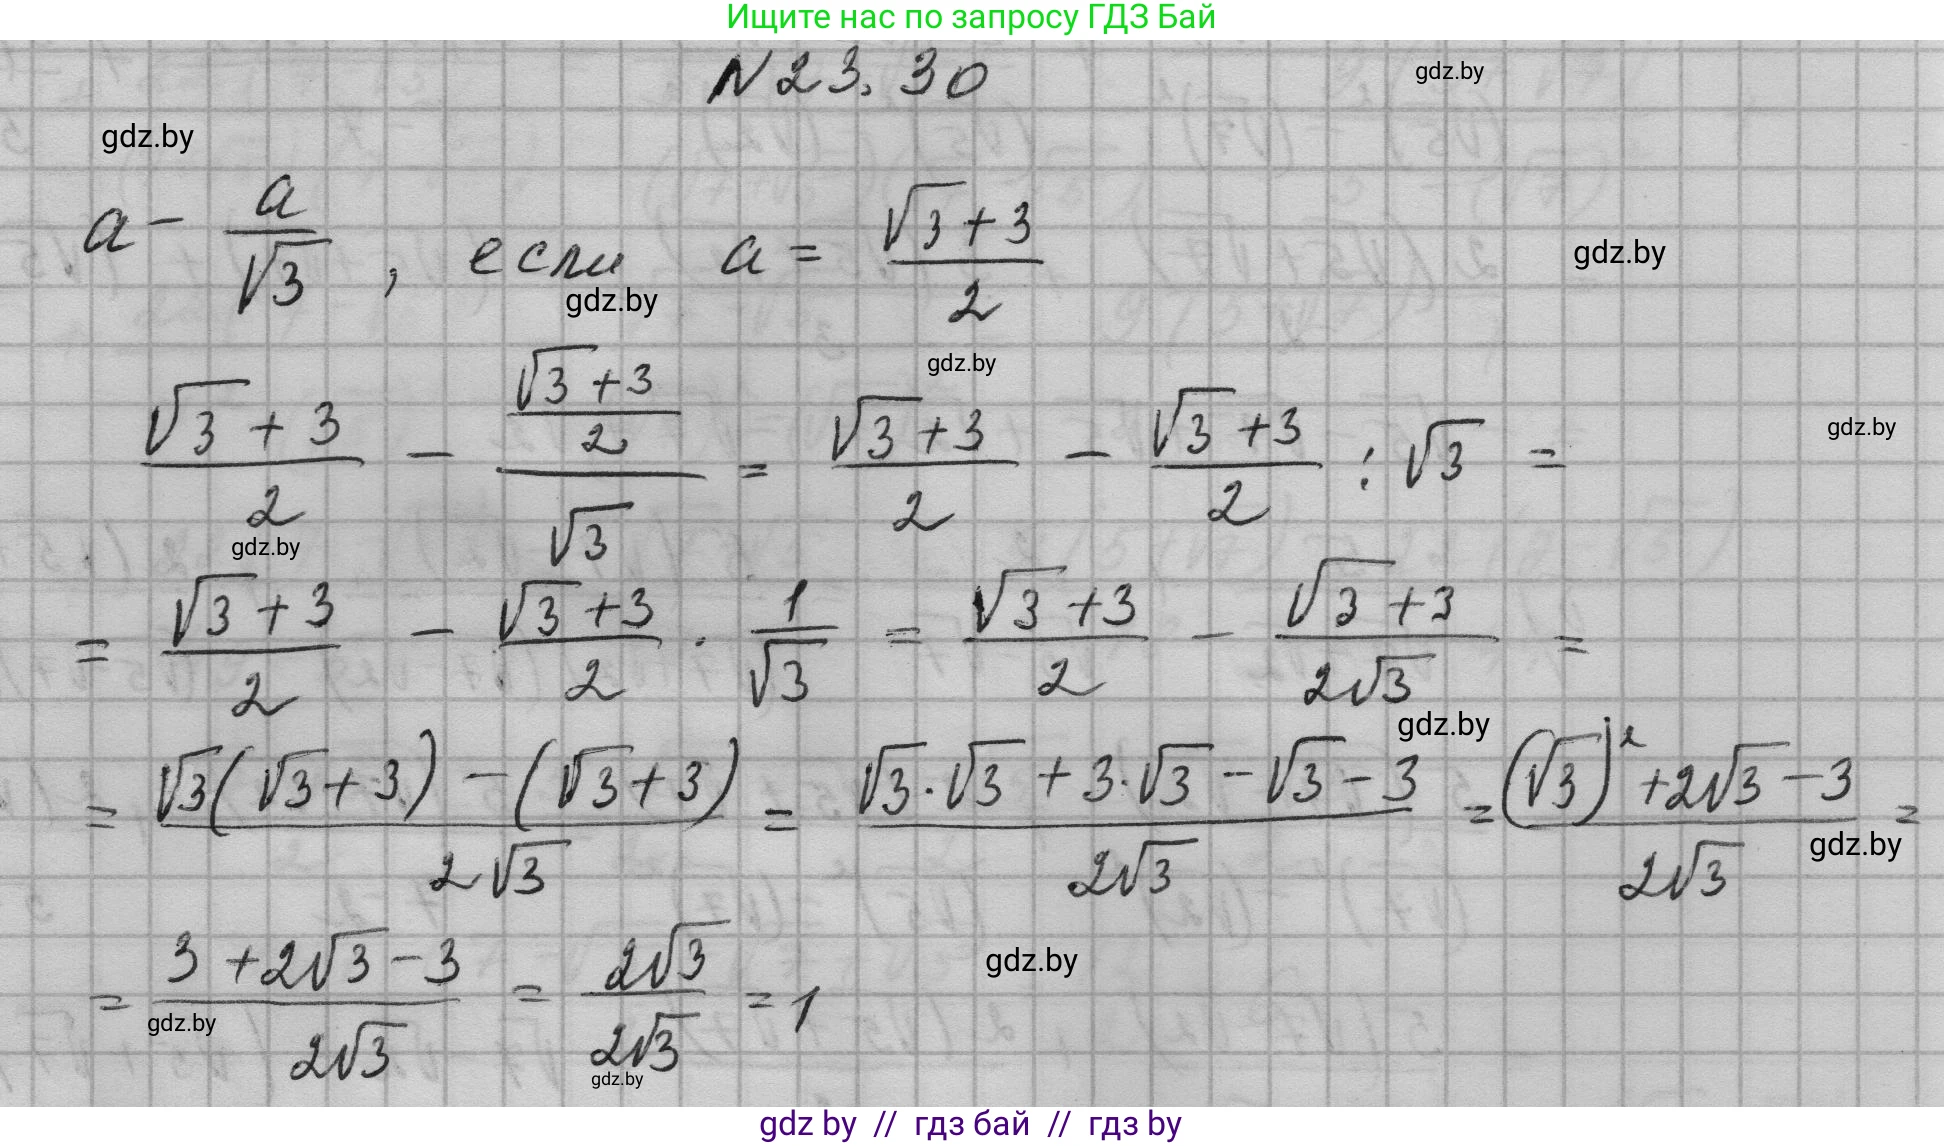 Ищите нас по запросу ГДЗ Бай
N 23.30
gdz.by
gdz.by
a - a/√3, если a = (√3 + 3)/2
gdz.by
gdz.by
gdz.by
(√3 + 3)/2 - ((√3 + 3)/2)/√3 = (√3 + 3)/2 - (√3 + 3)/2 : √3 =
gdz.by
gdz.by
= (√3 + 3)/2 - (√3 + 3)/2 · 1/√3 = (√3 + 3)/2 - (√3 + 3)/(2√3) =
gdz.by
= (√3(√3 + 3) - (√3 + 3))/(2√3) = (√3·√3 + 3·√3 - √3 - 3)/(2√3) = ((√3)² + 2√3 - 3)/(2√3) =
gdz.by
= (3 + 2√3 - 3)/(2√3) = (2√3)/(2√3) = 1
gdz.by
gdz.by
gdz.by
gdz by // гдз бай // гдз by